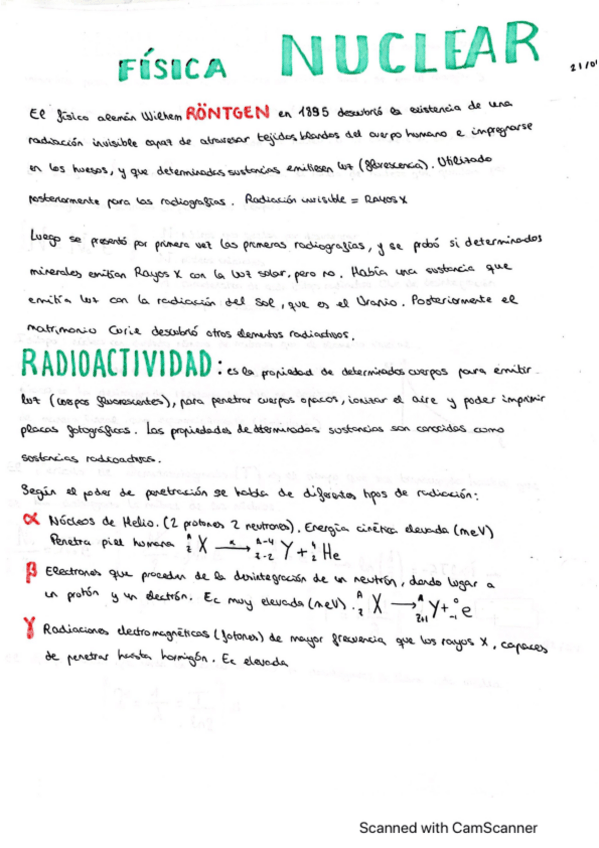 FÍSICA NUCLEAR
21/0
El físico alemán Wilhem RÖNTGEN en 1895 descubrió la existencia de una
radiación invisible capaz de atravesar tejidos blandos del cuerpo humano e impregnarse
en los huesos, y que determinadas sustancias emitiesen luz (fluorescencia). Utilizado
posteriormente para las radiografías. Radiación invisible = Rayos X
Luego se presentó por primera vez las primeras radiografías, y se probó si determinados
minerales emitían Rayos X con la luz solar, pero no. Había una sustancia que
emitía luz con la radiación del sol, que es el Uranio. Posteriormente el
matrimonio Curie descubrió otros elementos radiactivos.
RADIOACTIVIDAD: es la propiedad de determinados cuerpos para emitir
luz (cuerpos fluorescentes), para penetrar cuerpos opacos, ionizar el aire y poder imprimir
placas fotográficas. Las propiedades de determinadas sustancias son conocidas como
sustancias radioactivas.
Según el poder de penetración se habla de diferentes tipos de radiación:
α Núcleos de Helio. (2 protones 2 neutrones). Energía cinética elevada (meV)
Penetra piel humana A Z X α→ A-4 Z-2 Y + 4 2 He
β Electrones que proceden de la desintegración de un neutrón, dando lugar a
un protón y un electrón. Ec muy elevada (meV). A Z X → A Z+1 Y + 0 -1 e
γ Radiaciones electromagnéticas (fotones) de mayor frecuencia que los rayos X, capaces
de penetrar hasta hormigón. Ec elevada
Scanned with CamScanner